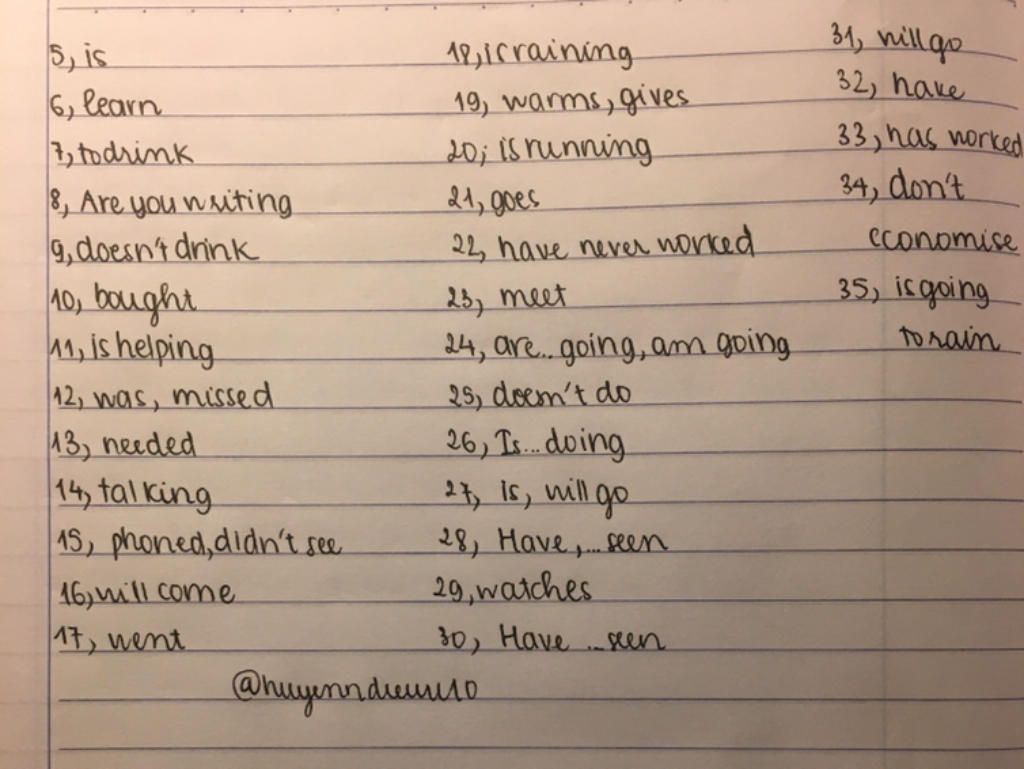 5, is
6, learn
7, to drink
8, Are you writing
9, doesn't drink
10, bought
11, is helping
12, was, missed
13, needed
14, talking
15, phoned, didn't see
16, will come
17, went
18, is raining
19, warms, gives
20, is running
21, goes
22, have never worked
23, meet
24, are.. going, am going
25, doesn't do
26, Is... doing
27, is, will go
28, Have, ... seen
29, watches
30, Have ... seen
31, will go
32, have
33, has worked
34, don't
economise
35, is going
to rain